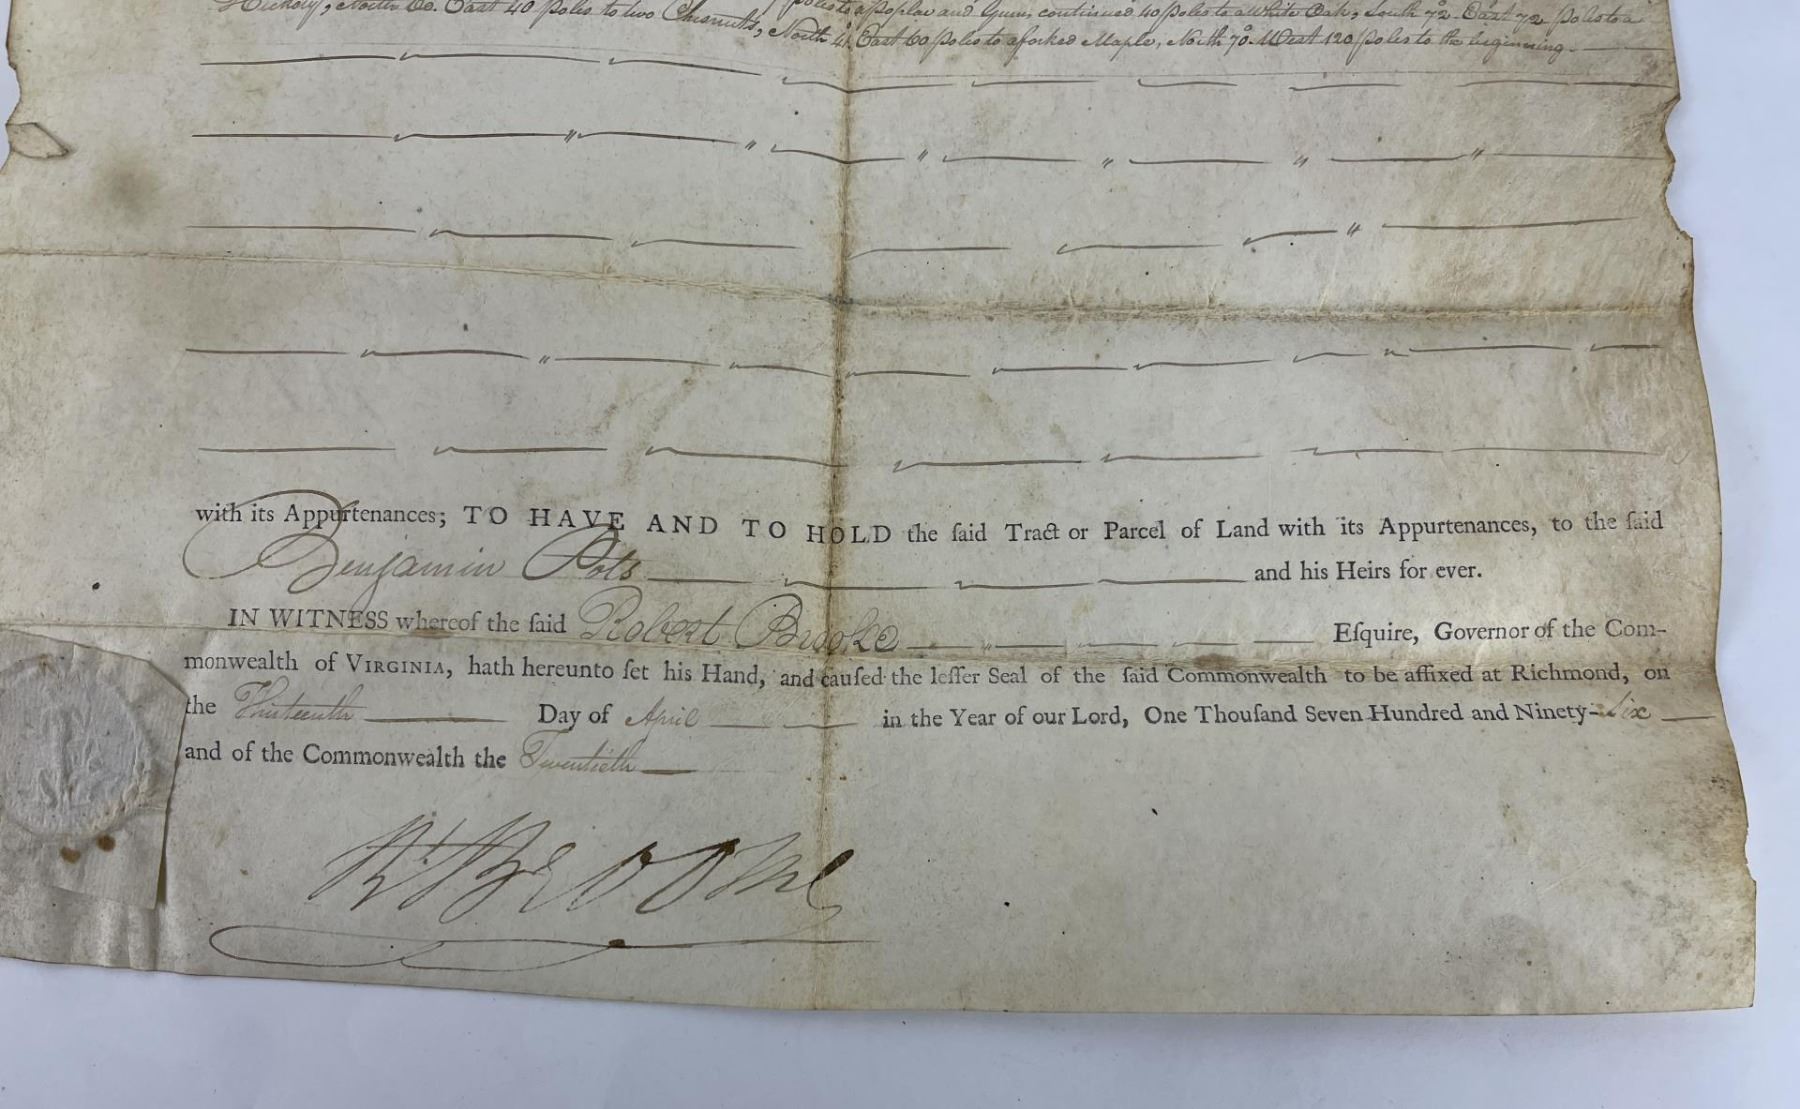 Hickory, North 60. East 40 poles to two Chesnuts, poles to a poplar and Gum, continued 40 poles to a White Oak, South 72. East 72 poles to a
North 41. East 60 poles to a forked Maple, North 70. West 120 poles to the beginning.
with its Appurtenances; TO HAVE AND TO HOLD the ſaid Tract or Parcel of Land with its Appurtenances, to the ſaid
Benjamin Pots and his Heirs for ever.
IN WITNESS whereof the ſaid Robert Brooke Eſquire, Governor of the Com-
monwealth of VIRGINIA, hath hereunto ſet his Hand, and cauſed the leſſer Seal of the ſaid Commonwealth to be affixed at Richmond, on
the Thirteenth Day of April in the Year of our Lord, One Thouſand Seven Hundred and Ninety-Six
and of the Commonwealth the Twentieth
Rt Brooke